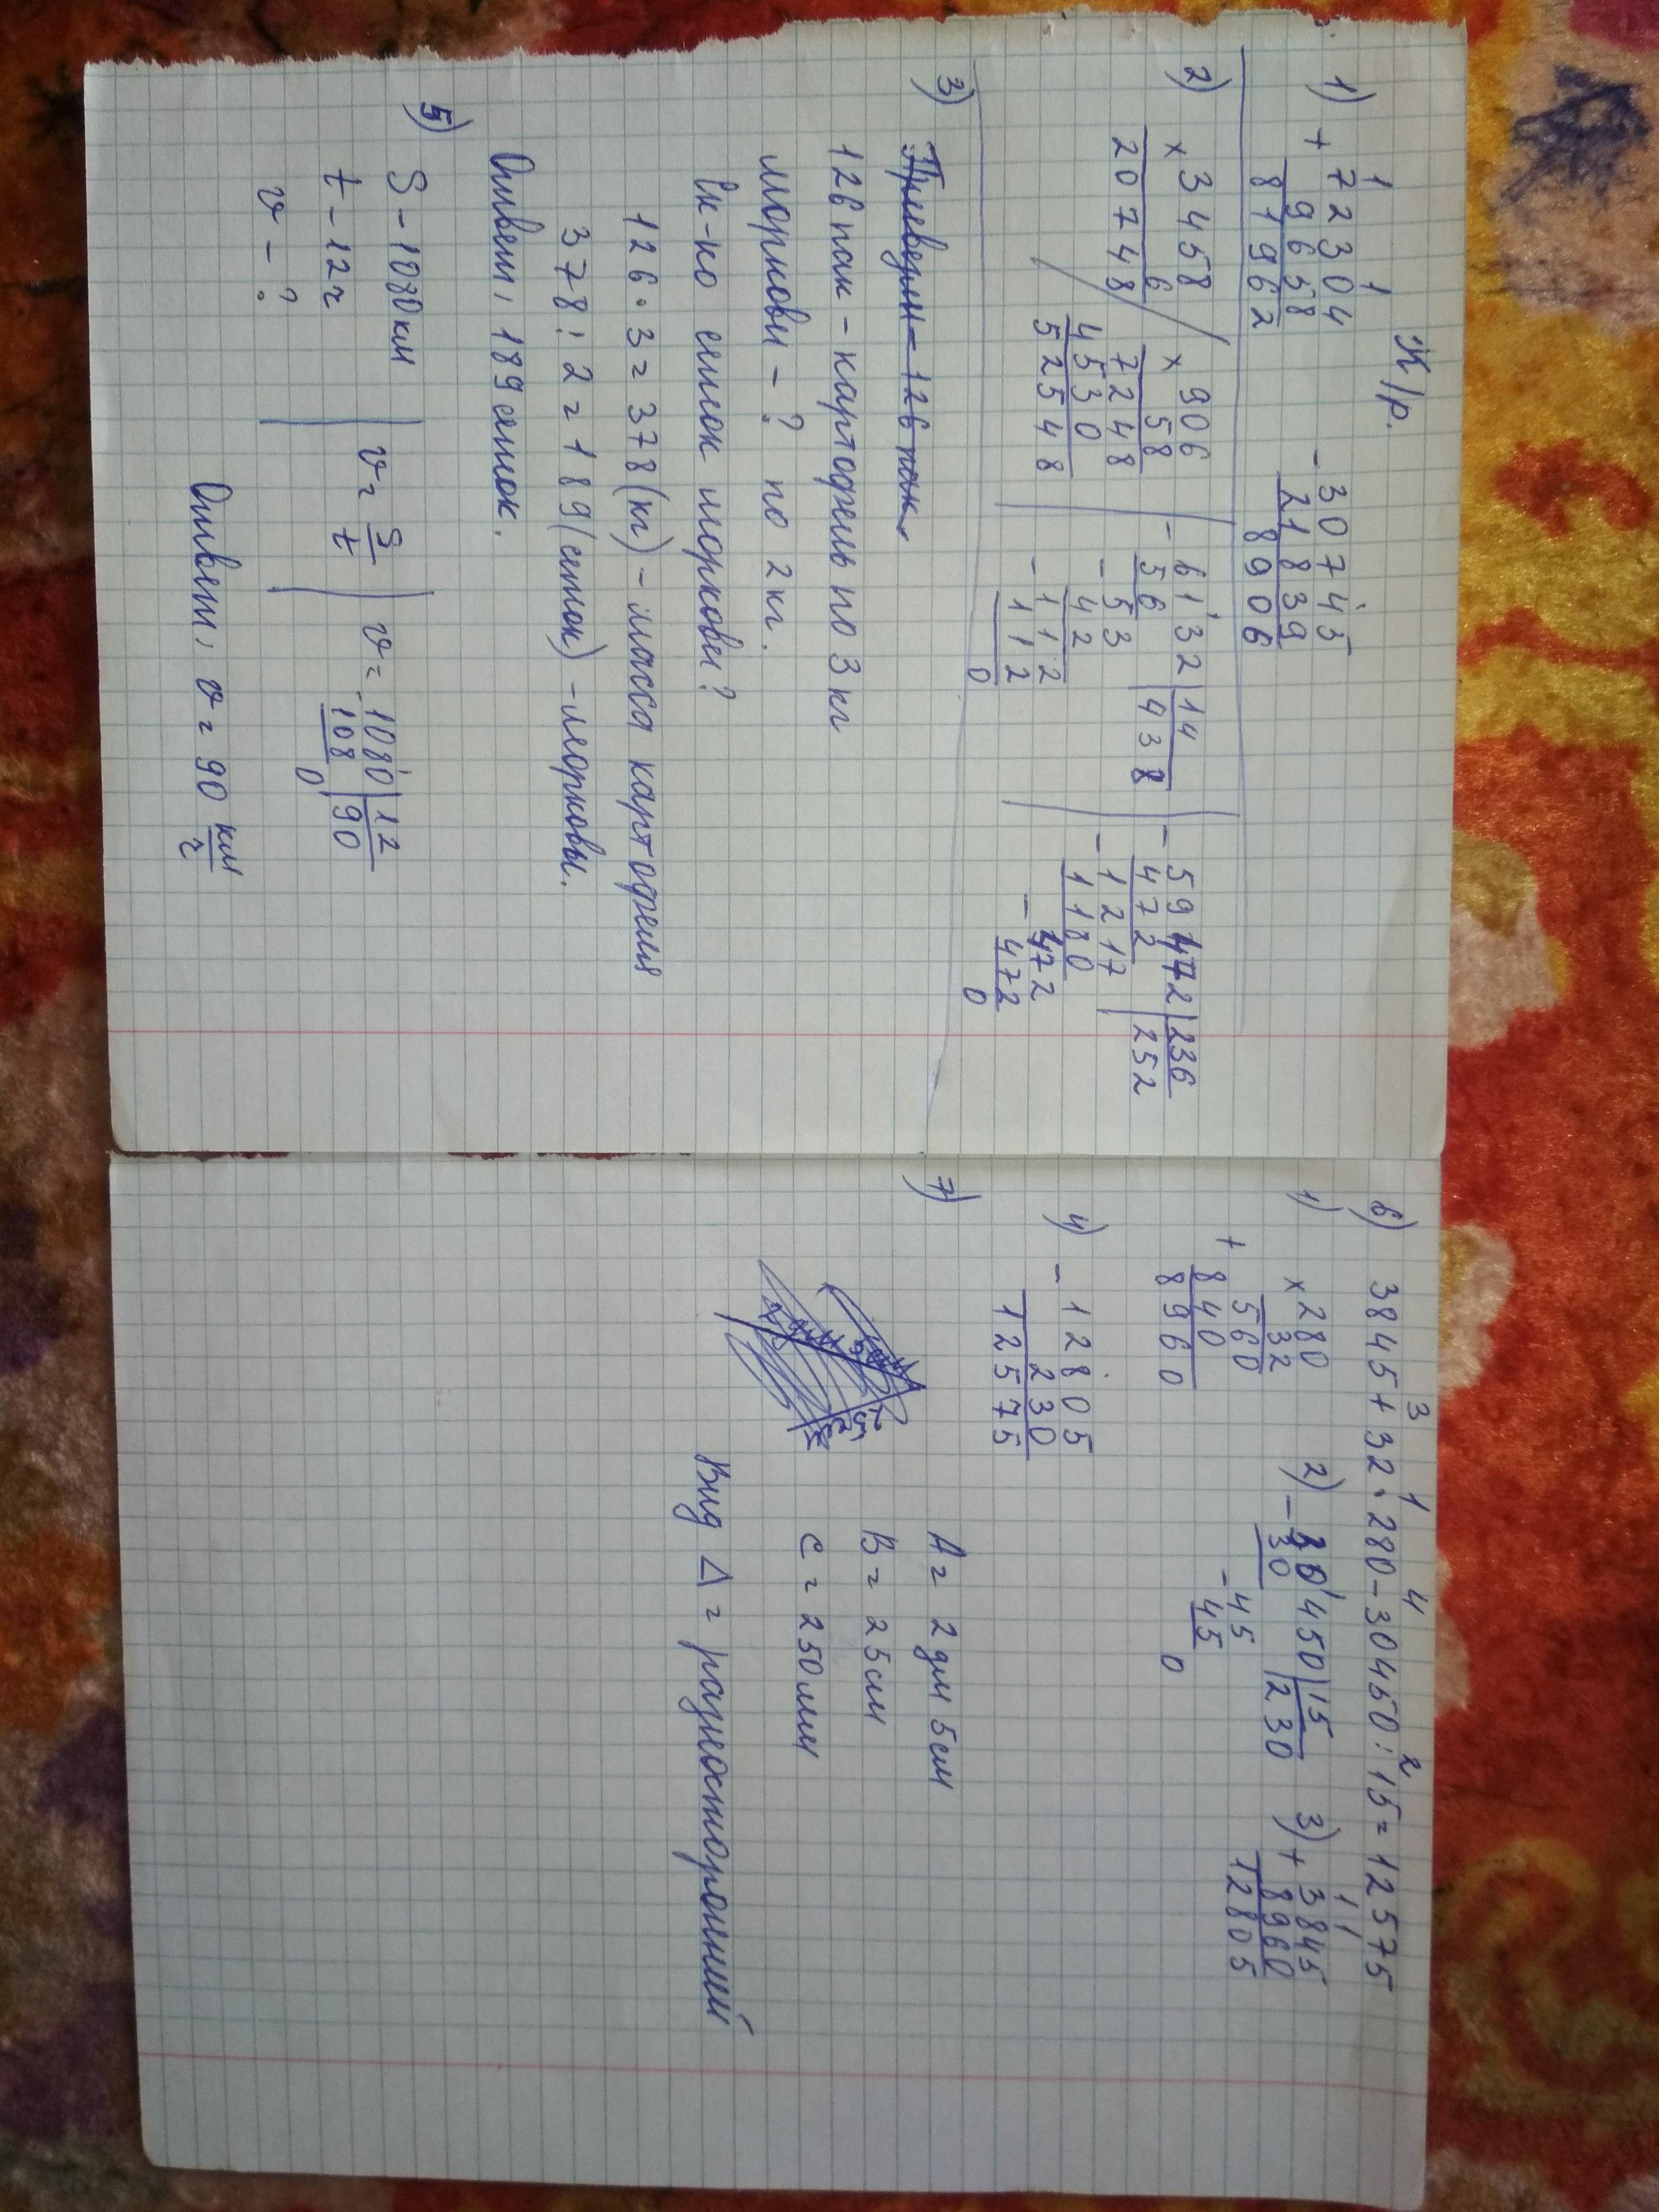 К/р.
1) + 72304
9658
81962
- 30745
21839
8906
2) × 3458
6
20748
× 906
58
7248
4530
52548
- 6132 | 14
56 | 438
- 53
42
- 112
112
0
- 59472 | 236
472 | 252
- 1217
1180
- 472
472
0
3) Привезли - 126 пак
126 пак - картофель по 3 кг
Моркови - ? по 2 кг.
Ск-ко сеток моркови?
126 · 3 = 378 (кг) - масса картофеля
378 : 2 = 189 (сеток) - моркови.
Ответ: 189 сеток.
5) S - 1080 км
t - 12 ч
v - ?
v = S/t
v = - 1080 | 12
108 | 90
0
Ответ: v = 90 км/ч
6) 3845 + 32 · 280 - 30450 : 15 = 12575
3 1 4 2
1) × 280
32
+ 560
840
8960
2) - 30450 | 15
30 | 230
- 45
45
0
3) + 3845
8960
12805
4) - 12805
230
12575
7)
A = 2 дм 5 см
B = 25 см
C = 250 мм
Вид Δ = равносторонний